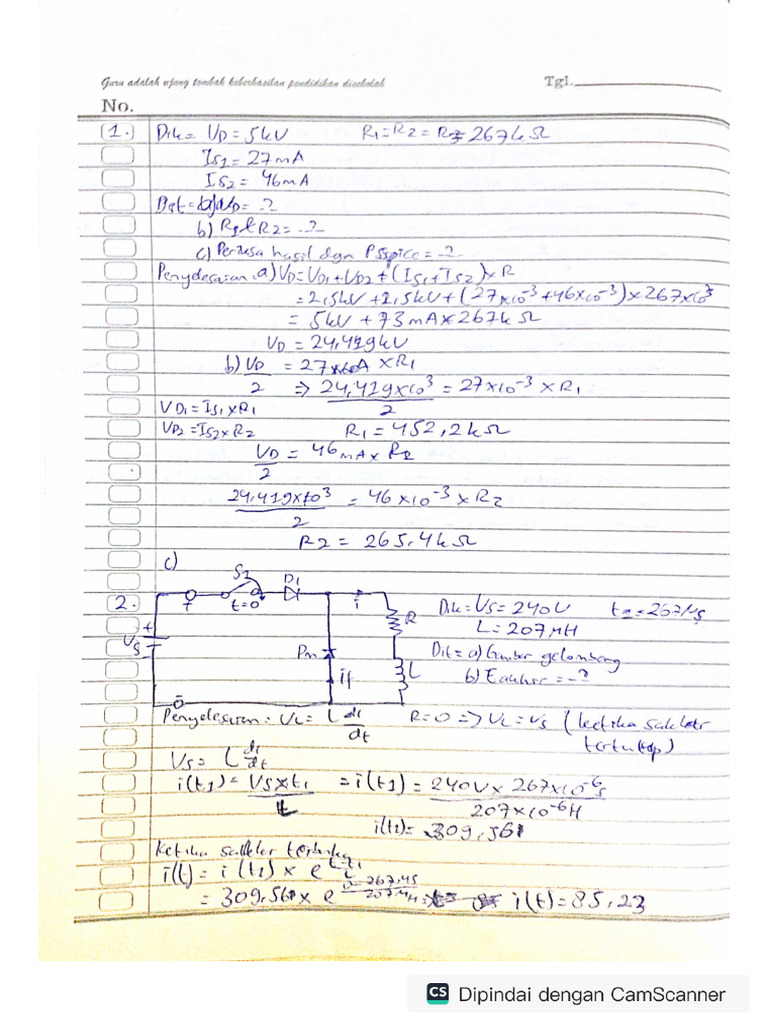 Guru adalah ujung tombak keberhasilan pendidikan disekolah
Tgl.
No.
(1.) Dik = VD = 5kV R1 = R2 = R3 = 267 kΩ
Is1 = 27 mA
Is2 = 46 mA
Dit = a) VD = ?
b) R1 & R2 = ?
c) Periksa hasil dgn PSspice = ?
Penyelesaian: a) VD = VD1 + VD2 + (Is1 + Is2) x R
= 2,5kV + 2,5kV + (27x10⁻³ + 46x10⁻³) x 267x10³
= 5kV + 73mA x 267k Ω
VD = 24,419kV
b) VD/2 = 27 x R1
⇒ 24,419x10³/2 = 27x10⁻³ x R1
VD1 = Is1 x R1
VD2 = Is2 x R2
R1 = 452,2kΩ
VD/2 = 46mA x R2
24,419x10³/2 = 46x10⁻³ x R2
R2 = 265,4kΩ
c)
2.
S2
t=0
D1
i
R
L
Dm
if
+
Vs
-
Dik = Vs = 240V = 267μs
L = 207μH
Dit = a) Gambar gelombang
b) = ?
Penyelesaian: VL = L di/dt R=0 ⇒ VL = Vs (ketika saklar tertutup)
Vs = L di/dt
i(t1) = Vs x t1/L = i(t1) = 240V x 267x10⁻⁶s/207x10⁻⁶H
i(t1) = 309,561
Ketika saklar terbuka
i(t) = i(t1) x e
= 309,561 x e i(t) = 85,23
CS Dipindai dengan CamScanner